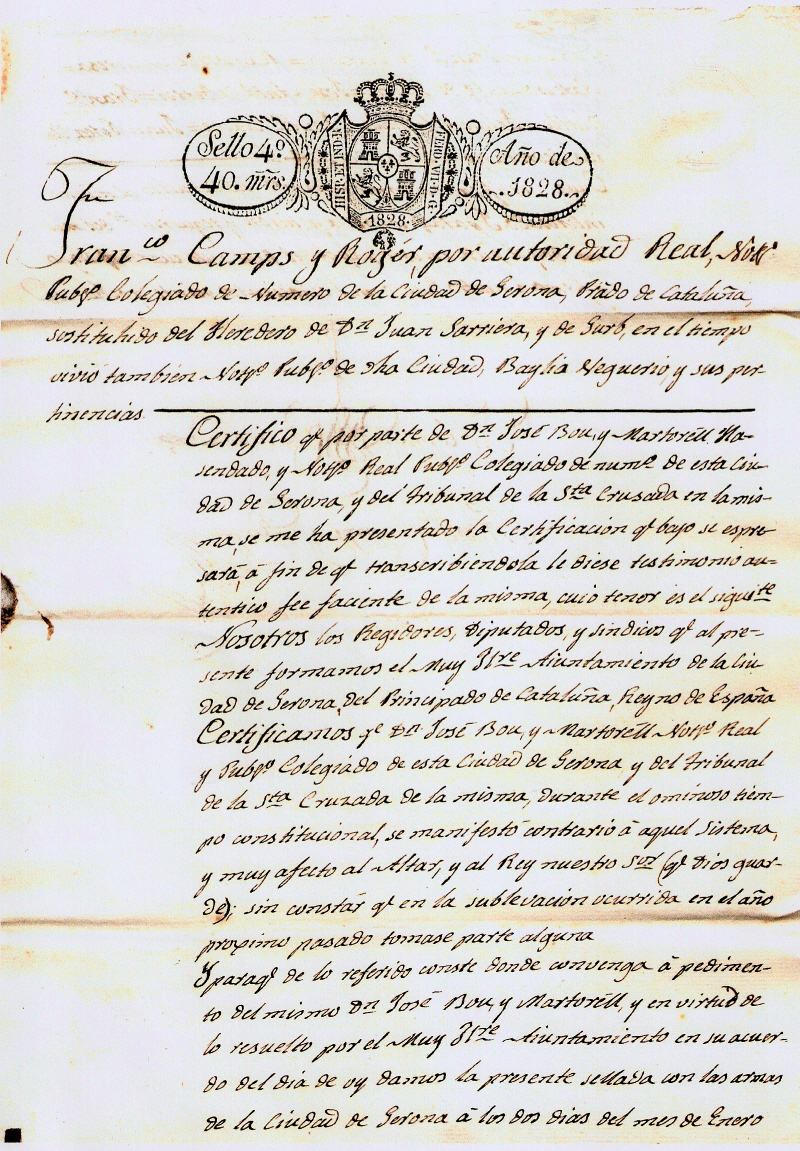 Sello 4.º
40. mrs.
HISP. ET IND. R.
FERD. VII. D. G.
1828.
Año de
1828.
Fran.co Camps y Rogér, por autoridad Real, Not.º
Pub.co Colegiado de Numero de la Ciudad de Gerona, Pñado de Cataluña,
sostituhido del Heredero de Dn Juan Sarriera, y de Gurb, en el tiempo
vivió tambien Not.º Pub.co de dha Ciudad, Baylia Veguerio, y sus per-
tinencias
Certifico qe por parte de Dn José Bou, y Martorell Ha-
sendado, y Not.º Real Pub.co Colegiado de num.º de esta Ciu-
dad de Gerona, y del Tribunal de la Sta Cruzada en la mis-
ma, se me ha presentado la Certificacion qe bajo se espre-
sará, á fin de qe transcribiendola le diese testimonio au-
tentico fee faciente de la misma, cuio tenor es el siguite
Nosotros los Regidores, Diputados, y sindicos qe al pre-
sente formamos el Muy Iltre Aiuntamiento de la Ciu-
dad de Gerona, del Principado de Cataluña, Reyno de España
Certificamos qe Dn José Bou, y Martorell Not.º Real
y Pub.co Colegiado de esta Ciudad de Gerona y del Tribunal
de la Sta Cruzada de la misma, durante el ominoso tiem-
po constitucional, se manifestó contrario á aquel Sistema,
y muy afecto al Altar, y al Rey nuestro Sor (qe Dios guar-
de); sin constár qe en la sublevacion ocurrida en el año
proximo pasado tomase parte alguna
Y paraqe de lo referido conste donde convenga á pedimen-
to del mismo Dn José Bou, y Martorell, y en virtud de
lo resuelto por el Muy Iltre Aiuntamiento en su acuer-
do del dia de oy damos la presente sellada con las armas
de la Ciudad de Gerona á los dos dias del mes de Enero